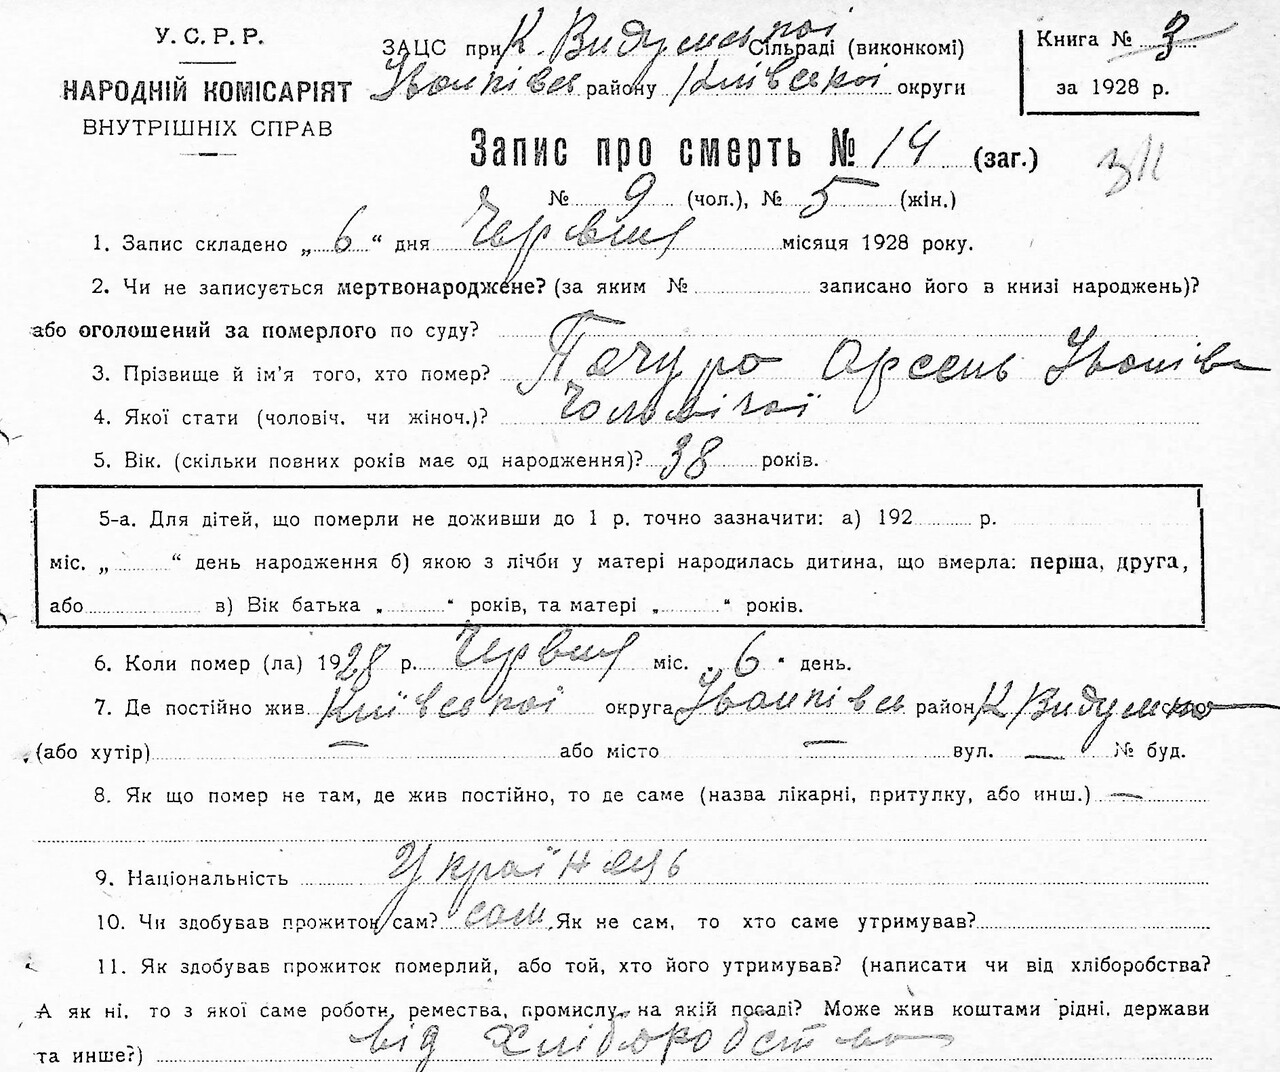 У. С. Р. Р.
НАРОДНІЙ КОМІСАРІЯТ
ВНУТРІШНІХ СПРАВ
ЗАЦС при К. Видумської Сільраді (виконкомі)
Іванківсь району Київської округи
Книга № 3
за 1928 р.
Запис про смерть № 14 (заг.)
№ 9 (чол.), № 5 (жін.)
1. Запис складено „ 6 “ дня Червня місяця 1928 року.
2. Чи не записується мертвонароджене? (за яким № записано його в книзі народжень)?
або оголошений за померлого по суду?
3. Прізвище й ім'я того, хто помер? Пачуро Арсень Іванів
4. Якої стати (чоловіч. чи жіноч.)? Чоловічої
5. Вік. (скільки повних років має од народження)? 38 років.
5-а. Для дітей, що померли не доживши до 1 р. точно зазначити: а) 192 р.
міс. „ “ день народження б) якою з лічби у матері народилась дитина, що вмерла: перша, друга,
або в) Вік батька „ “ років, та матері „ “ років.
6. Коли помер (ла) 1928 р. Червня міс. „ 6 “ день.
7. Де постійно жив Київської округа Іванківсь район К Видумка
(або хутір) — або місто — вул. — № буд.
8. Як що помер не там, де жив постійно, то де саме (назва лікарні, притулку, або инш.) —
9. Національність Українець
10. Чи здобував прожиток сам? сам. Як не сам, то хто саме утримував?
11. Як здобував прожиток померлий, або той, хто його утримував? (написати чи від хліборобства?
А як ні, то з якої саме роботи, ремества, промислу, на якій посаді? Може жив коштами рідні, держави
та инше?) від Хліборобства